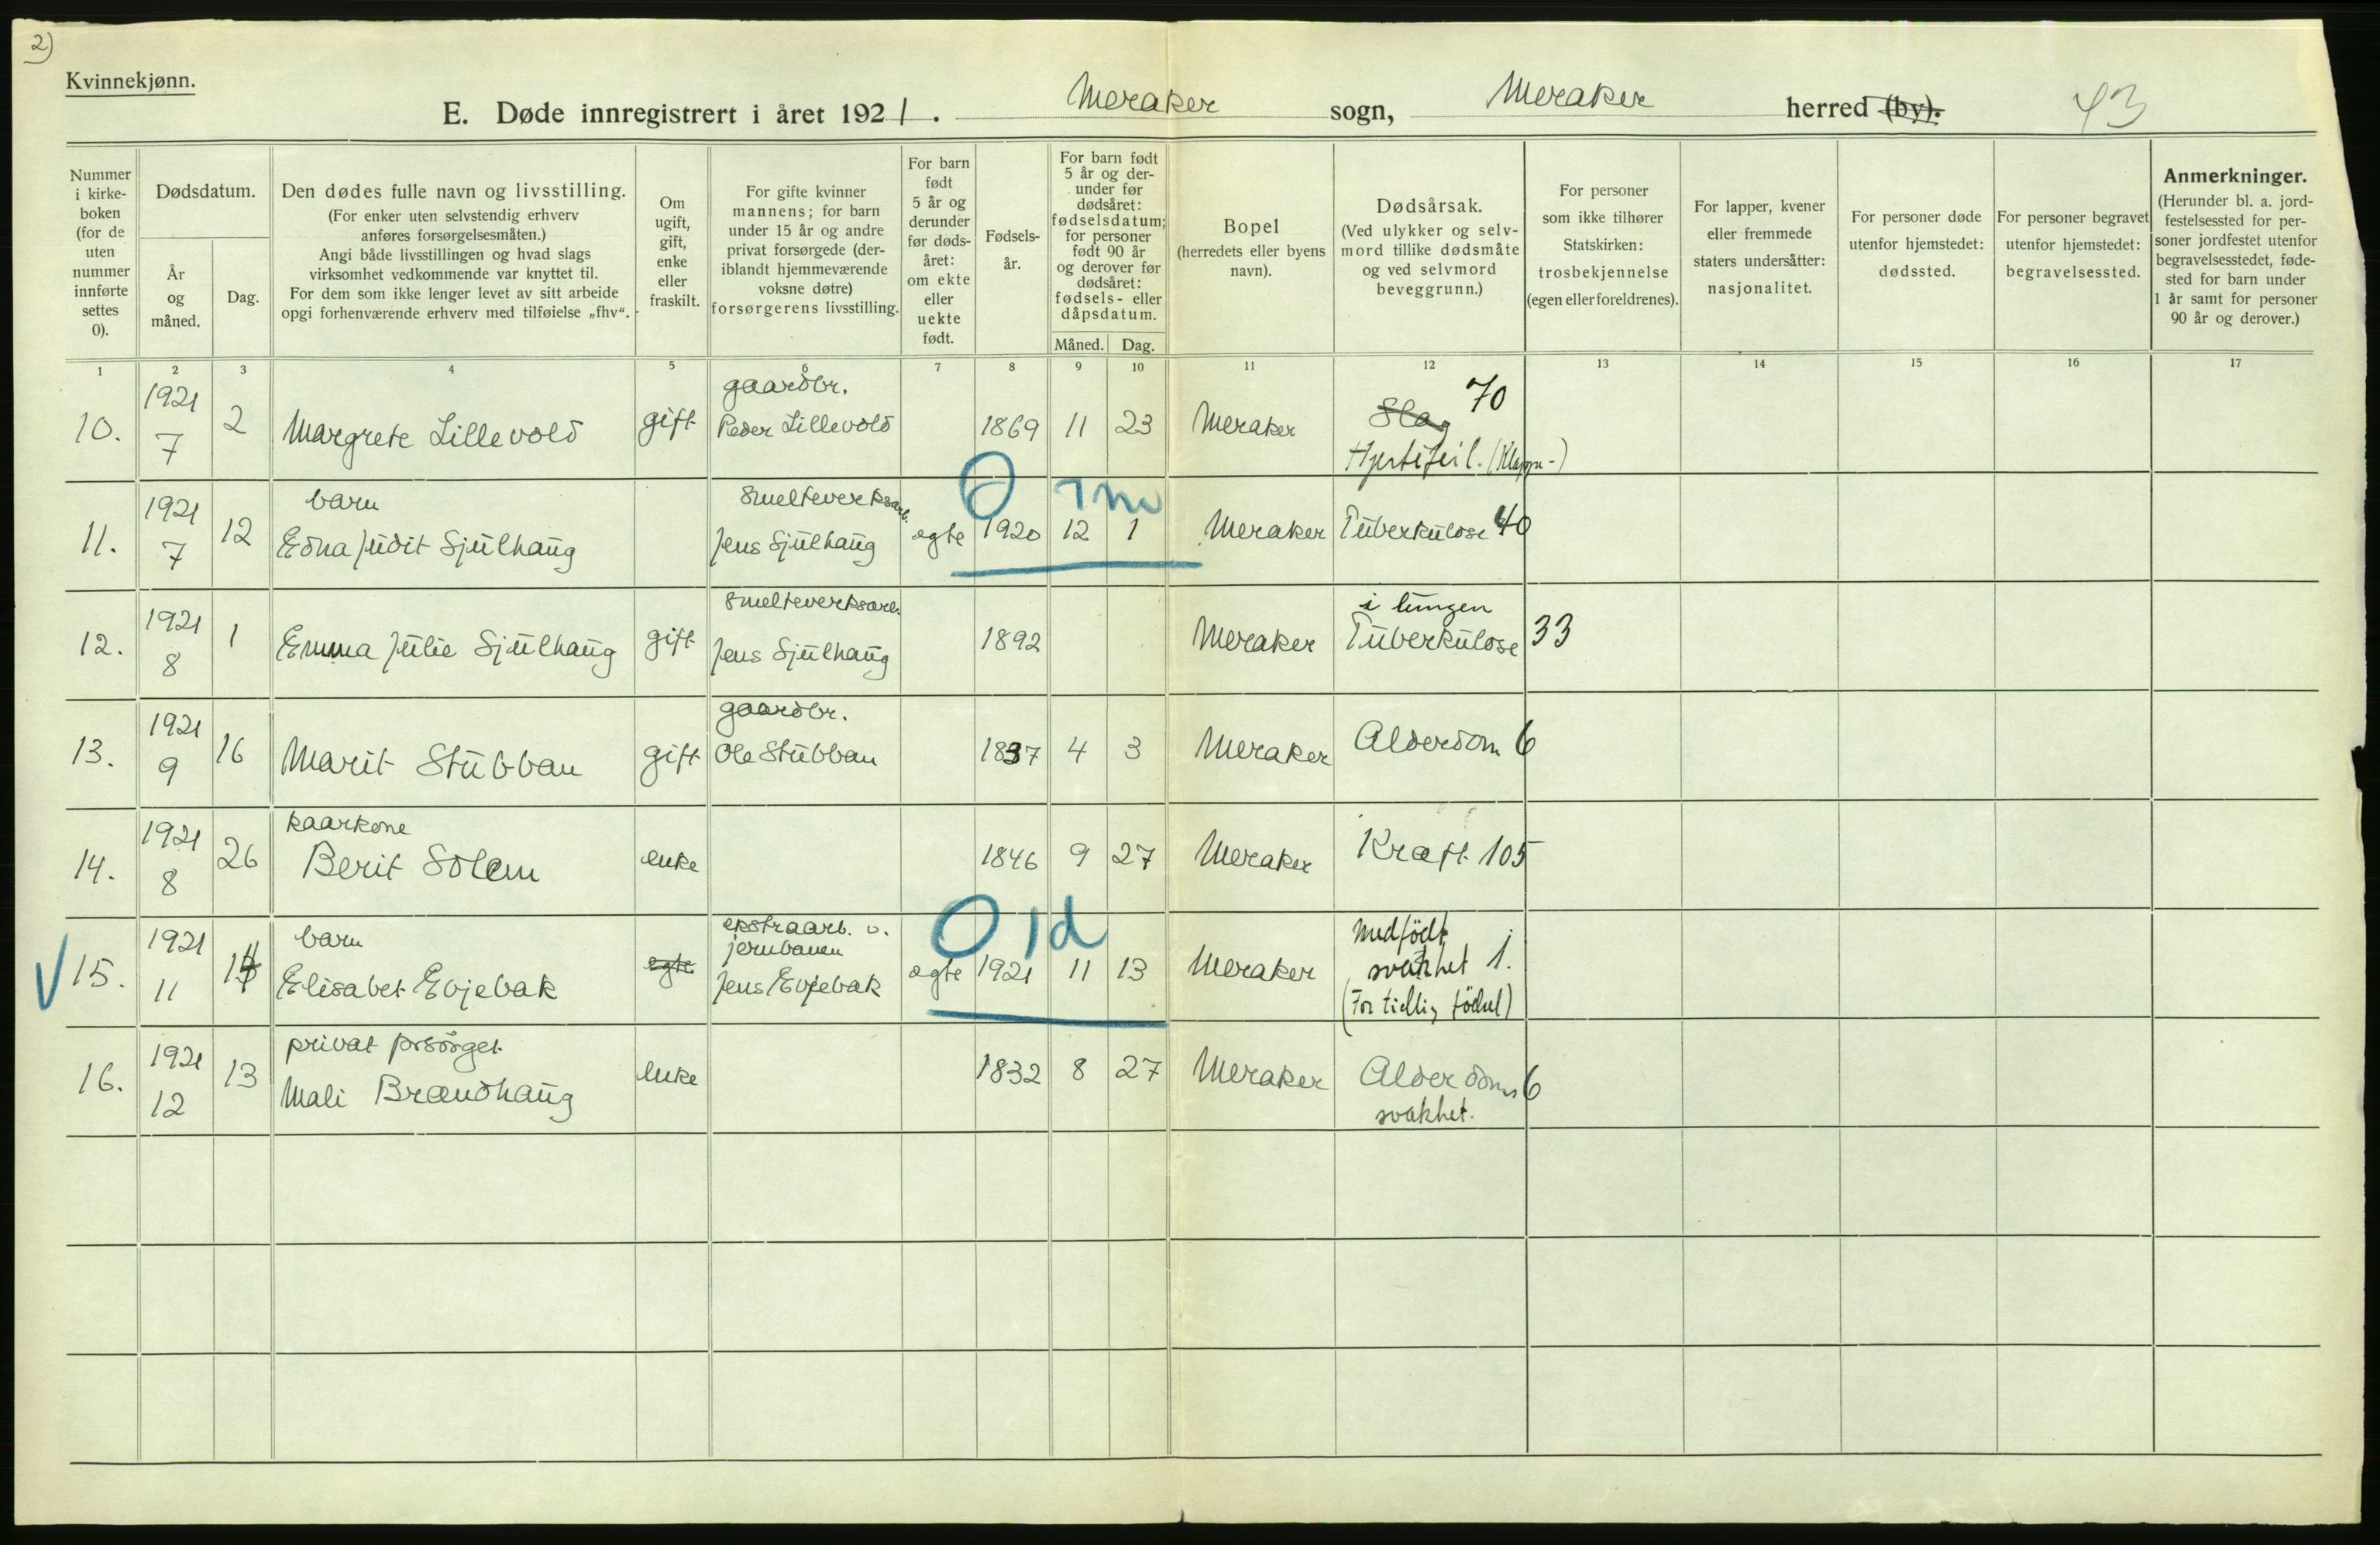 2)
Kvinnekjønn.
E. Døde innregistrert i året 1921. Meraker sogn, Meraker herred (by). 43
Nummer
i kirke-
boken
(for de
uten
nummer
innførte
settes
0).
Dødsdatum.
År
og
måned.
Dag.
Den dødes fulle navn og livsstilling.
(For enker uten selvstendig erhverv
anføres forsørgelsesmåten.)
Angi både livsstillingen og hvad slags
virksomhet vedkommende var knyttet til.
For dem som ikke lenger levet av sitt arbeide
opgi forhenværende erhverv med tilføielse „fhv“.
Om
ugift,
gift,
enke
eller
fraskilt.
For gifte kvinner
mannens; for barn
under 15 år og andre
privat forsørgede (der-
iblandt hjemmeværende
voksne døtre)
forsørgerens livsstilling.
For barn
født
5 år og
derunder
før døds-
året:
om ekte
eller
uekte
født.
Fødsels-
år.
For barn født
5 år og der-
under før
dødsåret:
fødselsdatum;
for personer
født 90 år
og derover før
dødsåret:
fødsels- eller
dåpsdatum.
Måned. Dag.
Bopel
(herredets eller byens
navn).
Dødsårsak.
(Ved ulykker og selv-
mord tillike dødsmåte
og ved selvmord
beveggrunn.)
For personer
som ikke tilhører
Statskirken:
trosbekjennelse
(egen eller foreldrenes).
For lapper, kvener
eller fremmede
staters undersåtter:
nasjonalitet.
For personer døde
utenfor hjemstedet:
dødssted.
For personer begravet
utenfor hjemstedet:
begravelsessted.
Anmerkninger.
(Herunder bl. a. jord-
festelsessted for per-
soner jordfestet utenfor
begravelsesstedet, føde-
sted for barn under
1 år samt for personer
90 år og derover.)
1 2 3 4 5 6 7 8 9 10 11 12 13 14 15 16 17
1921 gaardbr. Slag 70
10. 7 2 Margrete Lillevold gift Peder Lillevold 1869 11 23 Meraker
Hjertefeil. (Klappe-)
1921 barn Smelteverksarb. 0 7 m
11. 7 12 Edna Judit Sjulhaug Jens Sjulhaug ægte 1920 12 1 Meraker Tuberkulose 40
1921 Smelteverksarb. i lungen
12. 8 1 Emma Julie Sjulhaug gift Jens Sjulhaug 1892 Meraker Tuberkulose 33
1921 gaardbr.
13. 9 16 Marit Stubban gift Ole Stubban 1837 4 3 Meraker Alderdom 6
1921 kaarkone
14. 8 26 Berit Solem enke 1846 9 27 Meraker Kræft 105
1921 barn ekstraarb. v. 0 1d Medfödt
jernbanen
15. 11 14 Elisabet Evjebak egte Jens Evjebak ægte 1921 11 13 Meraker svakhet 1.
(For tidlig födsel)
1921 privat forsörget
16. 12 13 Mali Brændhaug enke 1832 8 27 Meraker Alderdoms 6
svakhet.